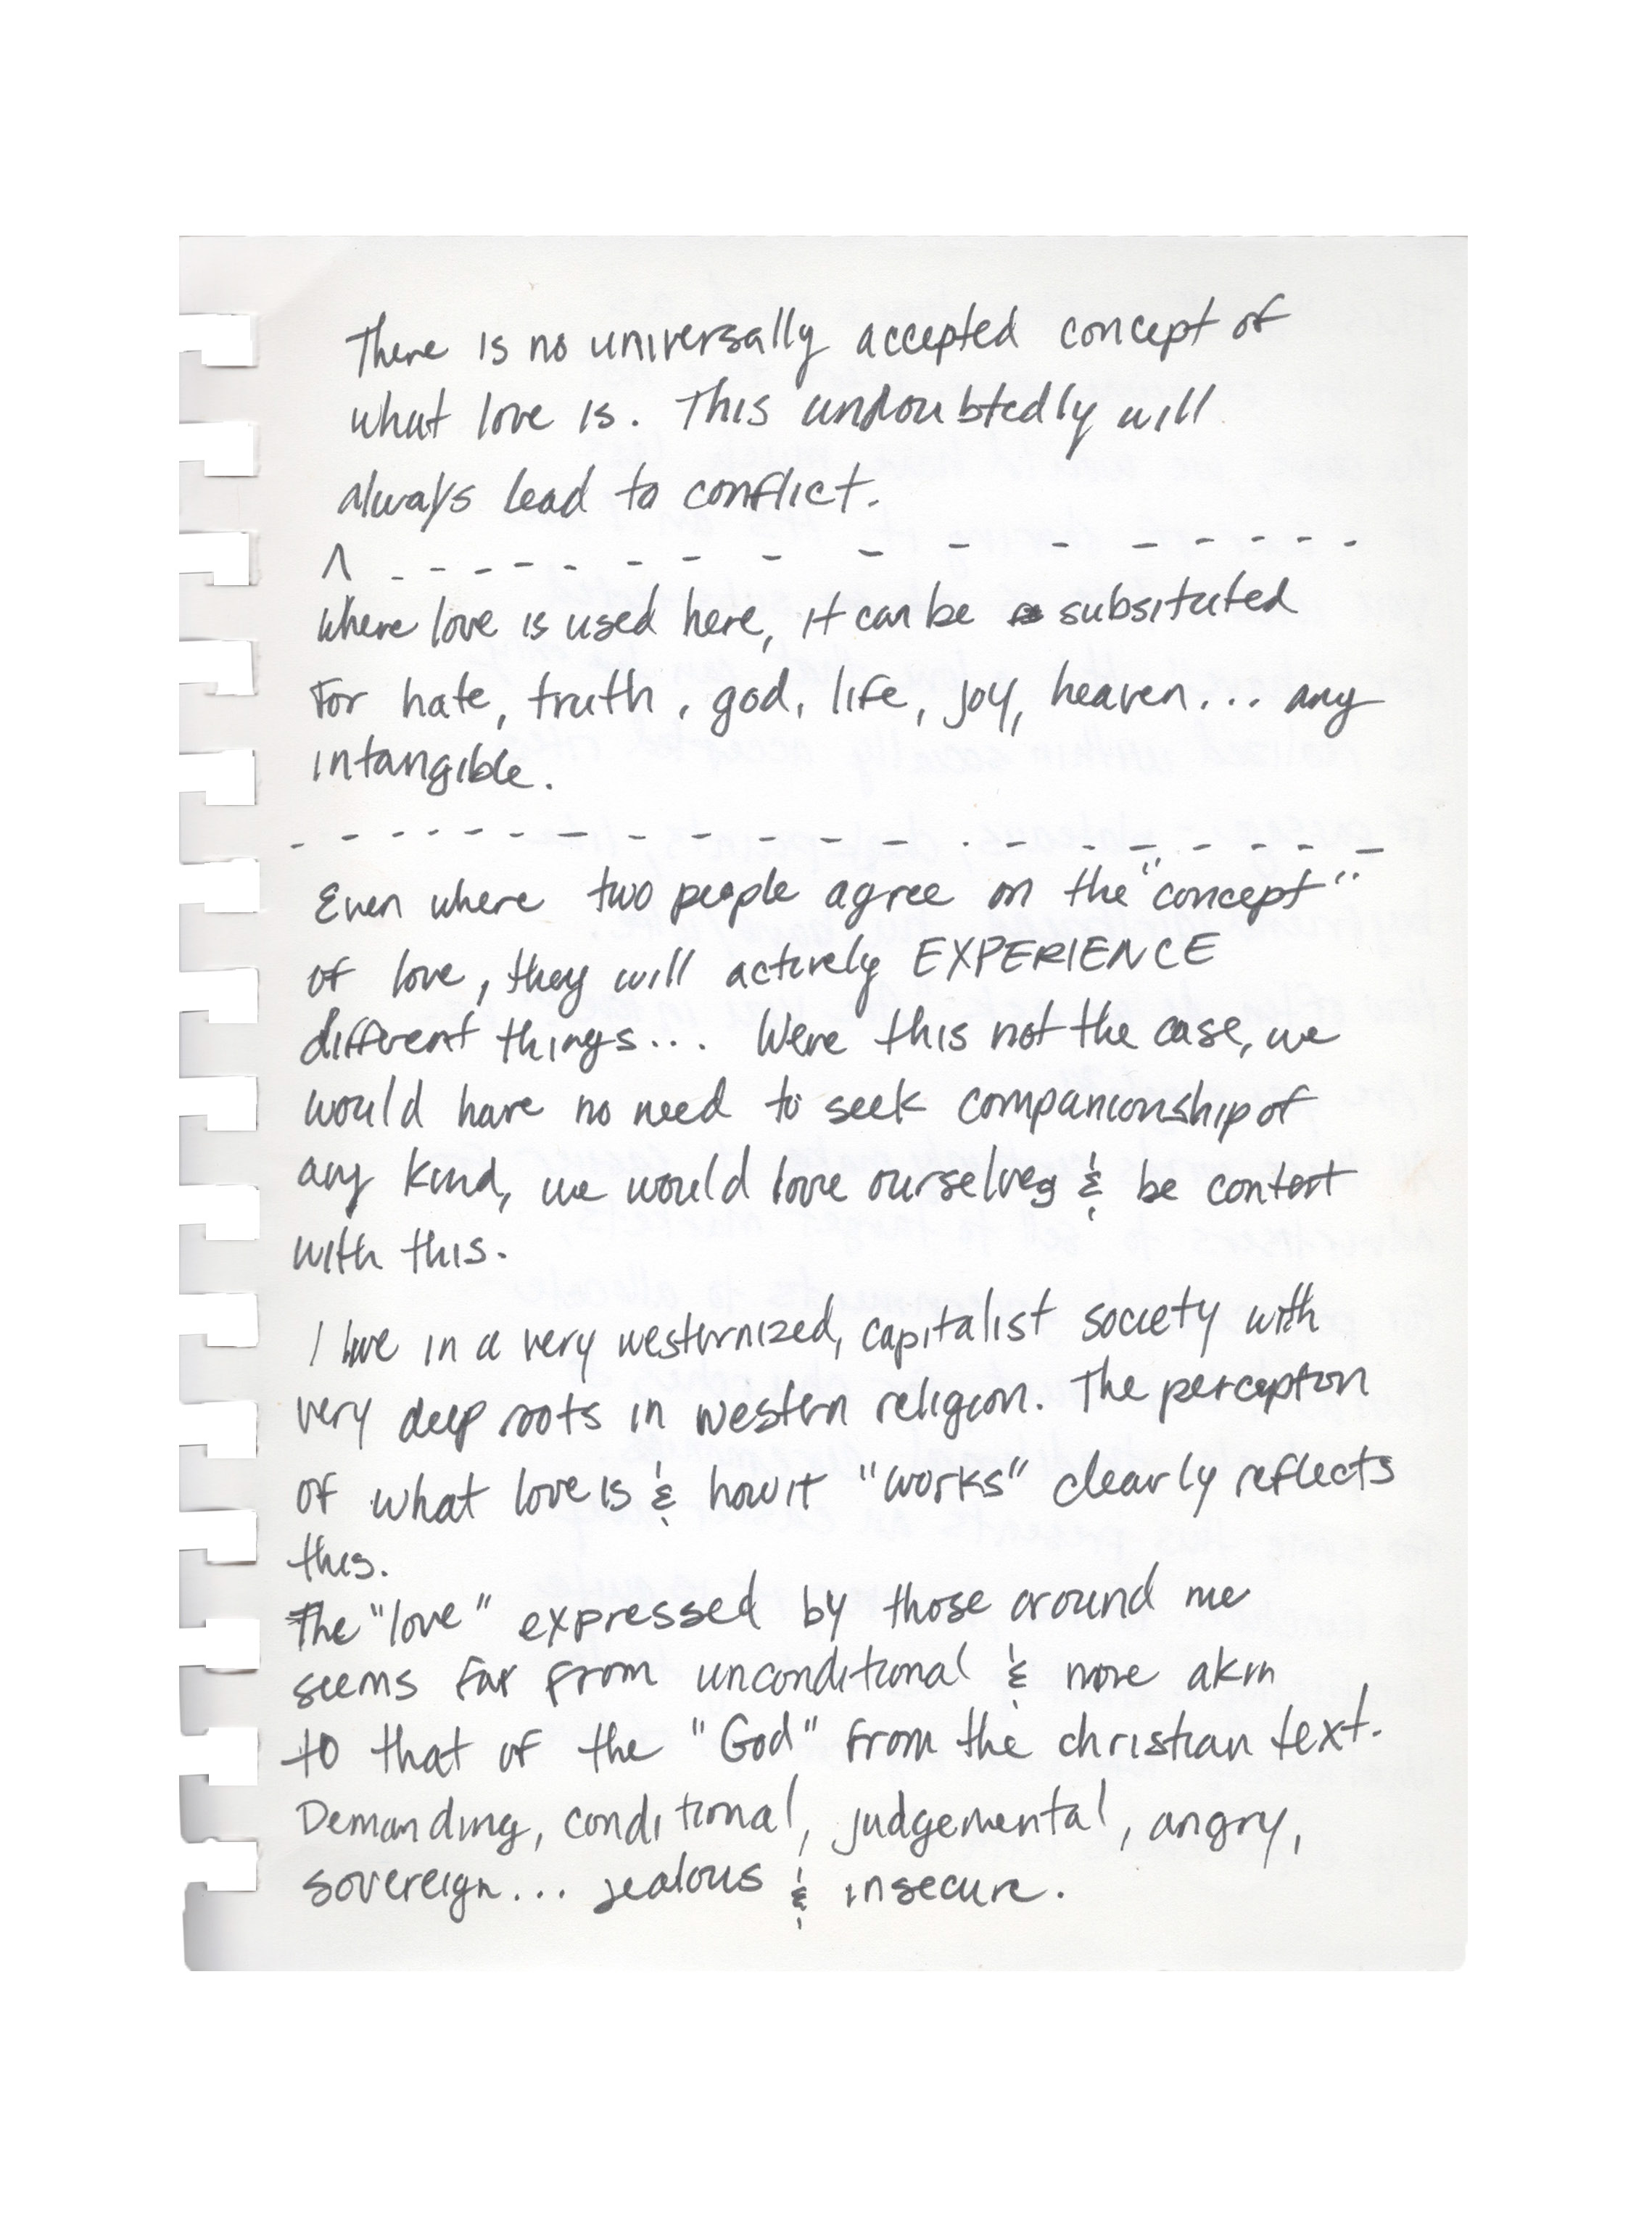 There is no universally accepted concept of
what love is. This undoubtedly will
always lead to conflict.
^ - - - - - - - - - - - - - - -
Where love is used here, it can be subsituted
for hate, truth, god, life, joy, heaven... any
intangible.
- - - - - - - - - - - - - - - - - -
Even where two people agree on the "concept"
of love, they will actively EXPERIENCE
different things... Were this not the case, we
would have no need to seek companionship of
any kind, we would love ourselves & be content
with this.
I live in a very westernized, capitalist society with
very deep roots in western religion. The perception
of what love is & how it "works" clearly reflects
this.
The "love" expressed by those around me
seems far from unconditional & more akin
to that of the "God" from the christian text.
Demanding, conditional, judgemental, angry,
sovereign... jealous & insecure.